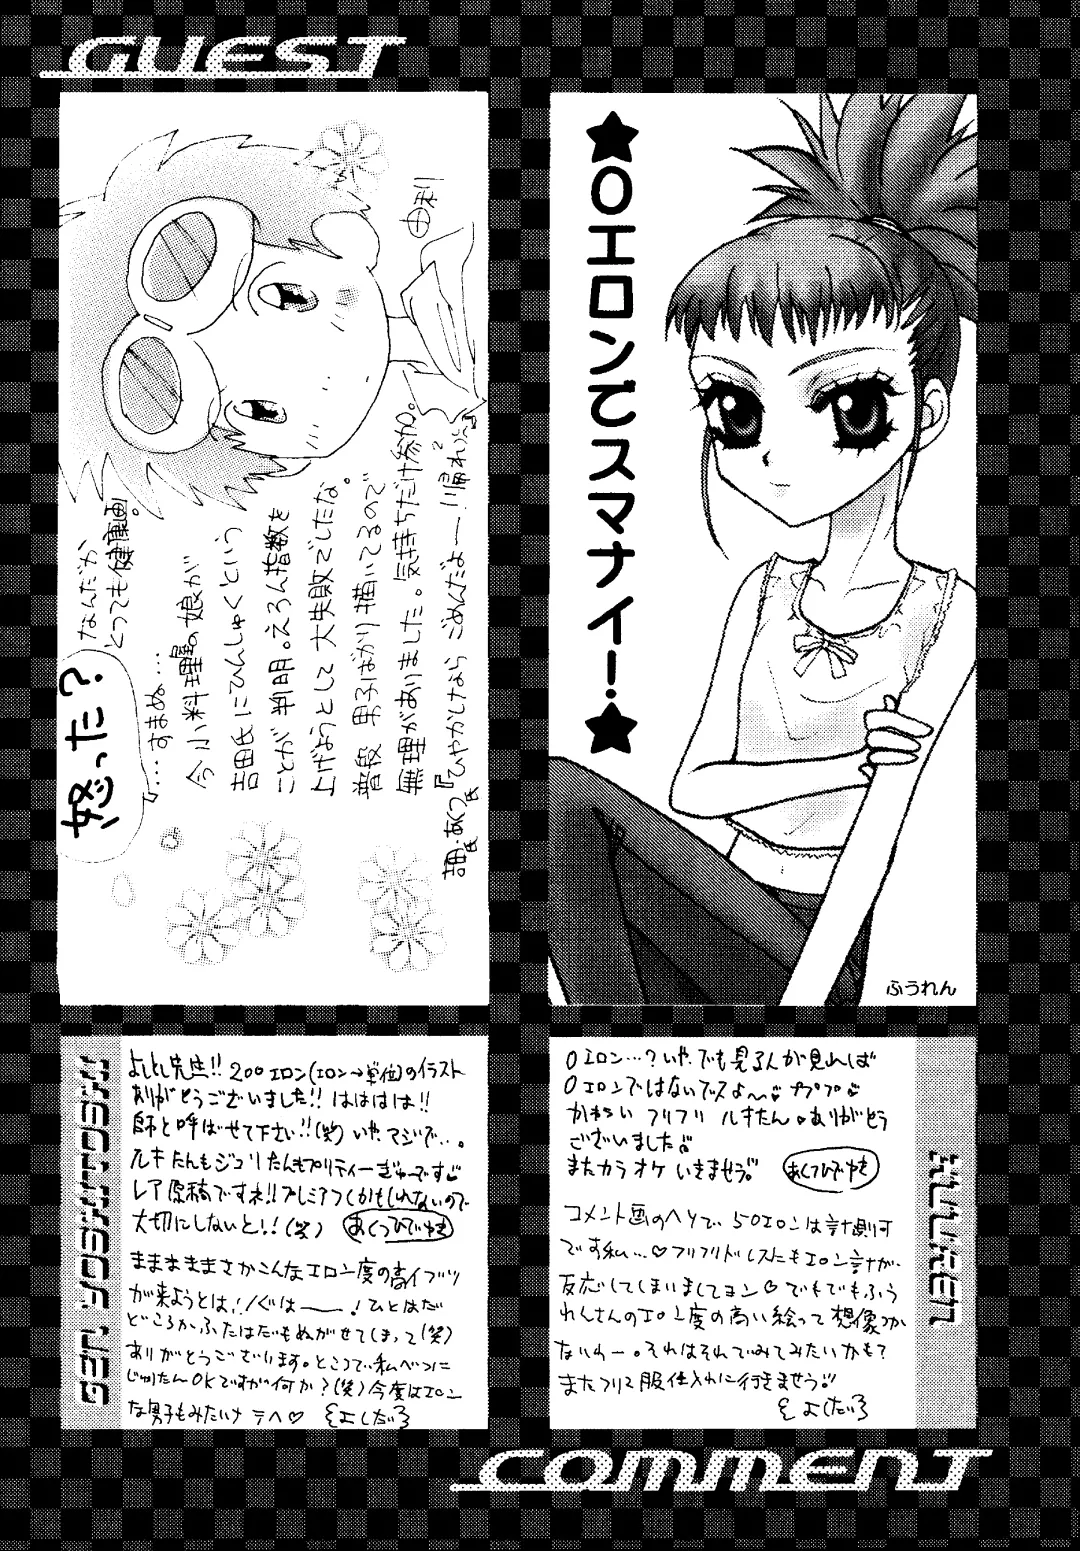 GUEST
★0エロンでスマナイ!★
ふうれん
なんだか
とっても健康画。
怒った?
『…すまぬ…
今、小料理屋の娘が
吉田氏にひんしゅくという
ことが判明。えろん指数を
上げようとして大失敗でしたな。
普段男子ばかり描いてるので
無理がありました。気持ちだけ参加。
『ひやかしなら ごめんだよー!!帰れっ』
よしとし先生!! 200エロン(エロン→単位)のイラスト
ありがとうございました!! はははは!!
師と呼ばせて下さい!!(笑) いや、マジで…。
ルキたんもジュリたんもプリティーぎゅーです
レア原稿ですネ!! プレミアつくかもしれないので
大切にしないと!!(笑) あくつひでゆき
まままままさかこんなエロン度の高イブツ
が来ようとは!ぐは――!ひとはだ
どころかふたはだもぬがせてしまって(笑)
ありがとうございます。ところで、私べつに
じゅりたんOKですが何か?(笑)今度はエロン
な男子もみたいナ テヘ♡ よしだい
0エロン…?いや、でも見る人が見れば
0エロンではないでスよ〜 ププ
かわいい フリフリ ルキたん ありがとう
ございました
またカラオケいきませう。 あくつひでゆき
コメント画のヘソで、50エロンは計測可
です私…♡フリフリドレスにもエロン計が、
反応してしまいましてョン♡でもでもふう
れんさんのエロン度の高い絵って想像つか
ないわー。それはそれでみてみたいかも?
またフリフリ服仕入れに行きませう!!
よしだい
COMMENT